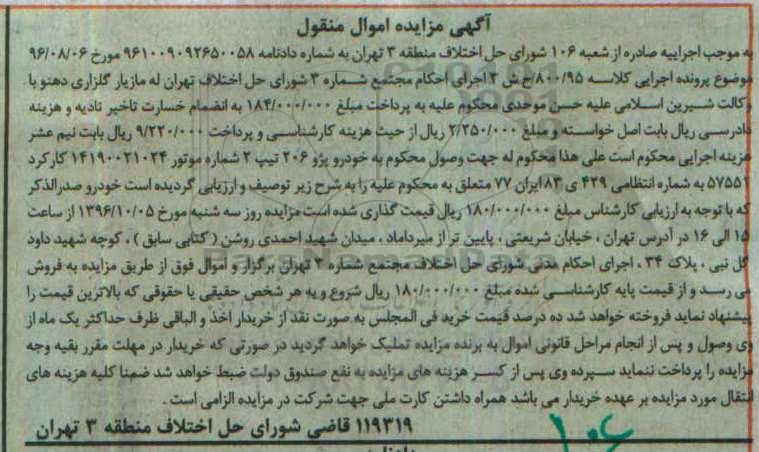 آگهی مزایده اموال منقول
به موجب اجراییه صادره از شعبه ۱۰۶ شورای حل اختلاف منطقه ۳ تهران به شماره دادنامه ۹۶۱۰۰۹۰۹۲۶۵۰۰۵۸ مورخ ۹۶/۰۸/۰۶
موضوع پرونده اجرایی کلاسه ۸۰۰/۹۵/ج ش ۳ اجرای احکام مجتمع شماره ۳ شورای حل اختلاف تهران له مازیار گلزاری دهنو با
وکالت شیرین اسلامی علیه حسن موحدی محکوم علیه به پرداخت مبلغ ۱۸۴/۰۰۰/۰۰۰ به انضمام خسارت تاخیر تادیه و هزینه
دادرسی ریال بابت اصل خواسته و مبلغ ۲/۲۵۰/۰۰۰ ریال از حیث هزینه کارشناسی و پرداخت ۹/۲۲۰/۰۰۰ ریال بابت نیم عشر
هزینه اجرایی محکوم است علی هذا محکوم له جهت وصول محکوم به خودرو پژو ۲۰۶ تیپ ۲ شماره موتور ۱۴۱۹۰۰۲۱۰۲۴ کارکرد
۵۷۵۵۱ به شماره انتظامی ۴۲۹ ی ۸۳ ایران ۷۷ متعلق به محکوم علیه را به شرح زیر توصیف و ارزیابی گردیده است خودرو صدرالذکر
که با توجه به ارزیابی کارشناس مبلغ ۱۸۰/۰۰۰/۰۰۰ ریال قیمت گذاری شده است مزایده روز سه شنبه مورخ ۱۳۹۶/۱۰/۰۵ از ساعت
۱۵ الی ۱۶ در آدرس تهران ، خیابان شریعتی ، پایین تر از میرداماد ، میدان شهید احمدی روشن ( کتابی سابق ) ، کوچه شهید داود
گل نبی ، پلاک ۳۴ ، اجرای احکام مدنی شورای حل اختلاف مجتمع شماره ۳ تهران برگزار و اموال فوق از طریق مزایده به فروش
می رسد و از قیمت پایه کارشناسی شده مبلغ ۱۸۰/۰۰۰/۰۰۰ ریال شروع و به هر شخص حقیقی یا حقوقی که بالاترین قیمت را
پیشنهاد نماید فروخته خواهد شد ده درصد قیمت خرید فی المجلس به صورت نقد از خریدار اخذ و الباقی ظرف حداکثر یک ماه از
وی وصول و پس از انجام مراحل قانونی اموال به برنده مزایده تملیک خواهد گردید در صورتی که خریدار در مهلت مقرر بقیه وجه
مزایده را پرداخت ننماید سپرده وی پس از کسر هزینه های مزایده به نفع صندوق دولت ضبط خواهد شد ضمنا کلیه هزینه های
انتقال مورد مزایده بر عهده خریدار می باشد همراه داشتن کارت ملی جهت شرکت در مزایده الزامی است .
۱۱۹۳۱۹ قاضی شورای حل اختلاف منطقه ۳ تهران